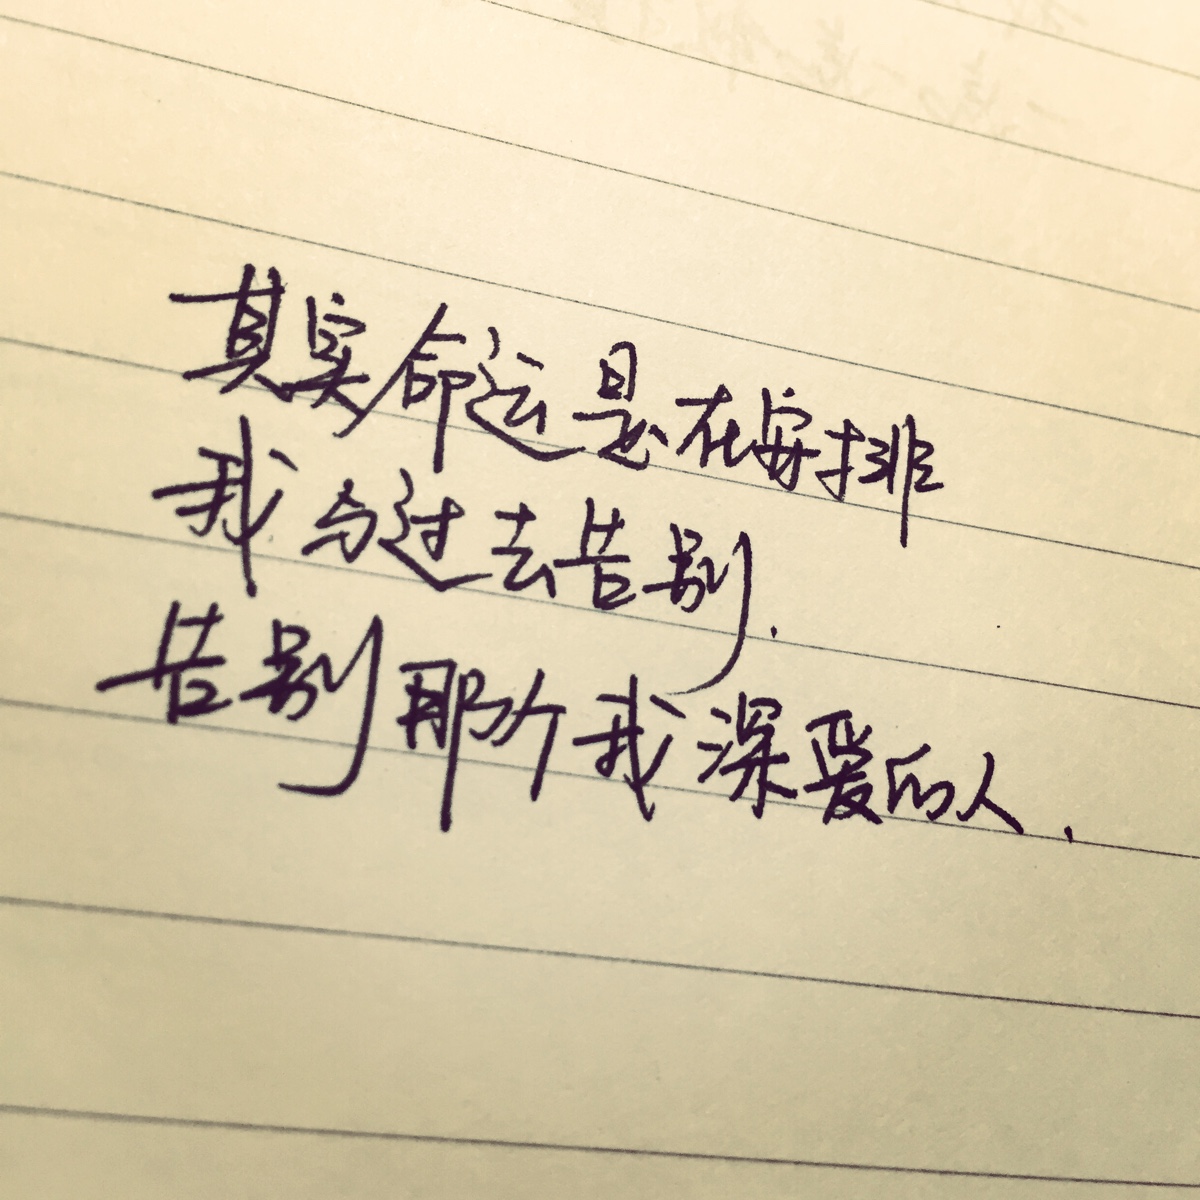 其实命运是在安排
我与过去告别.
告别那个我深爱的人.